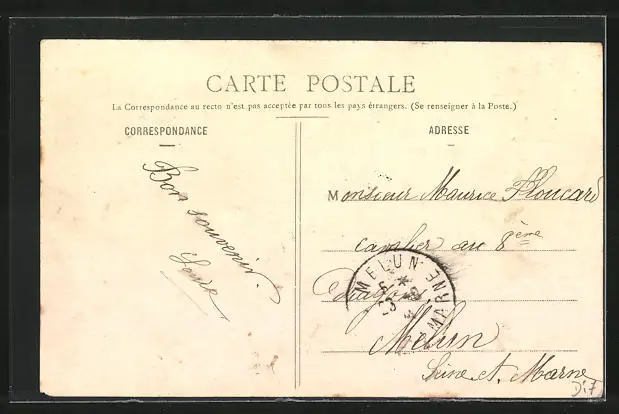 CARTE POSTALE
La Correspondance au recto n'est pas acceptée par tous les pays étrangers. (Se renseigner à la Poste.)
CORRESPONDANCE
Bon souvenir.
ADRESSE
Monsieur Maurice Ploucard
cavalier au 8ème
Dragons
Melun
Seine et Marne
MELUN
MARNE